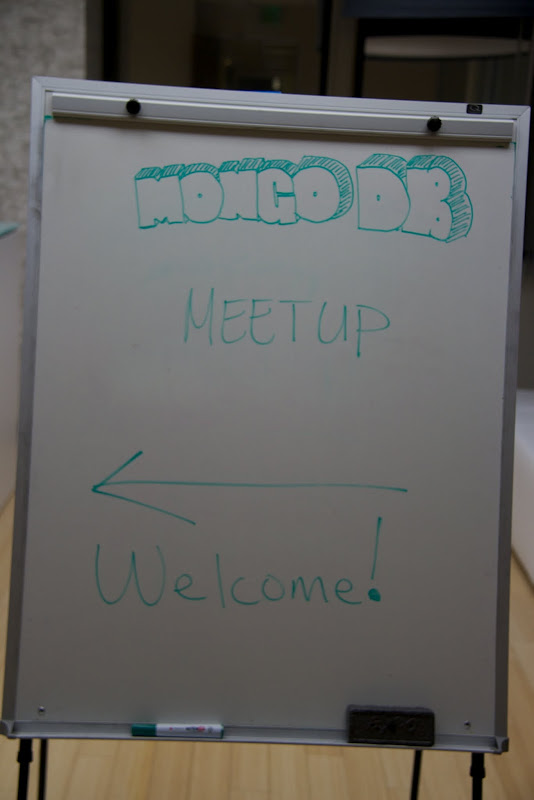 MONGO DB
MEETUP
Welcome!